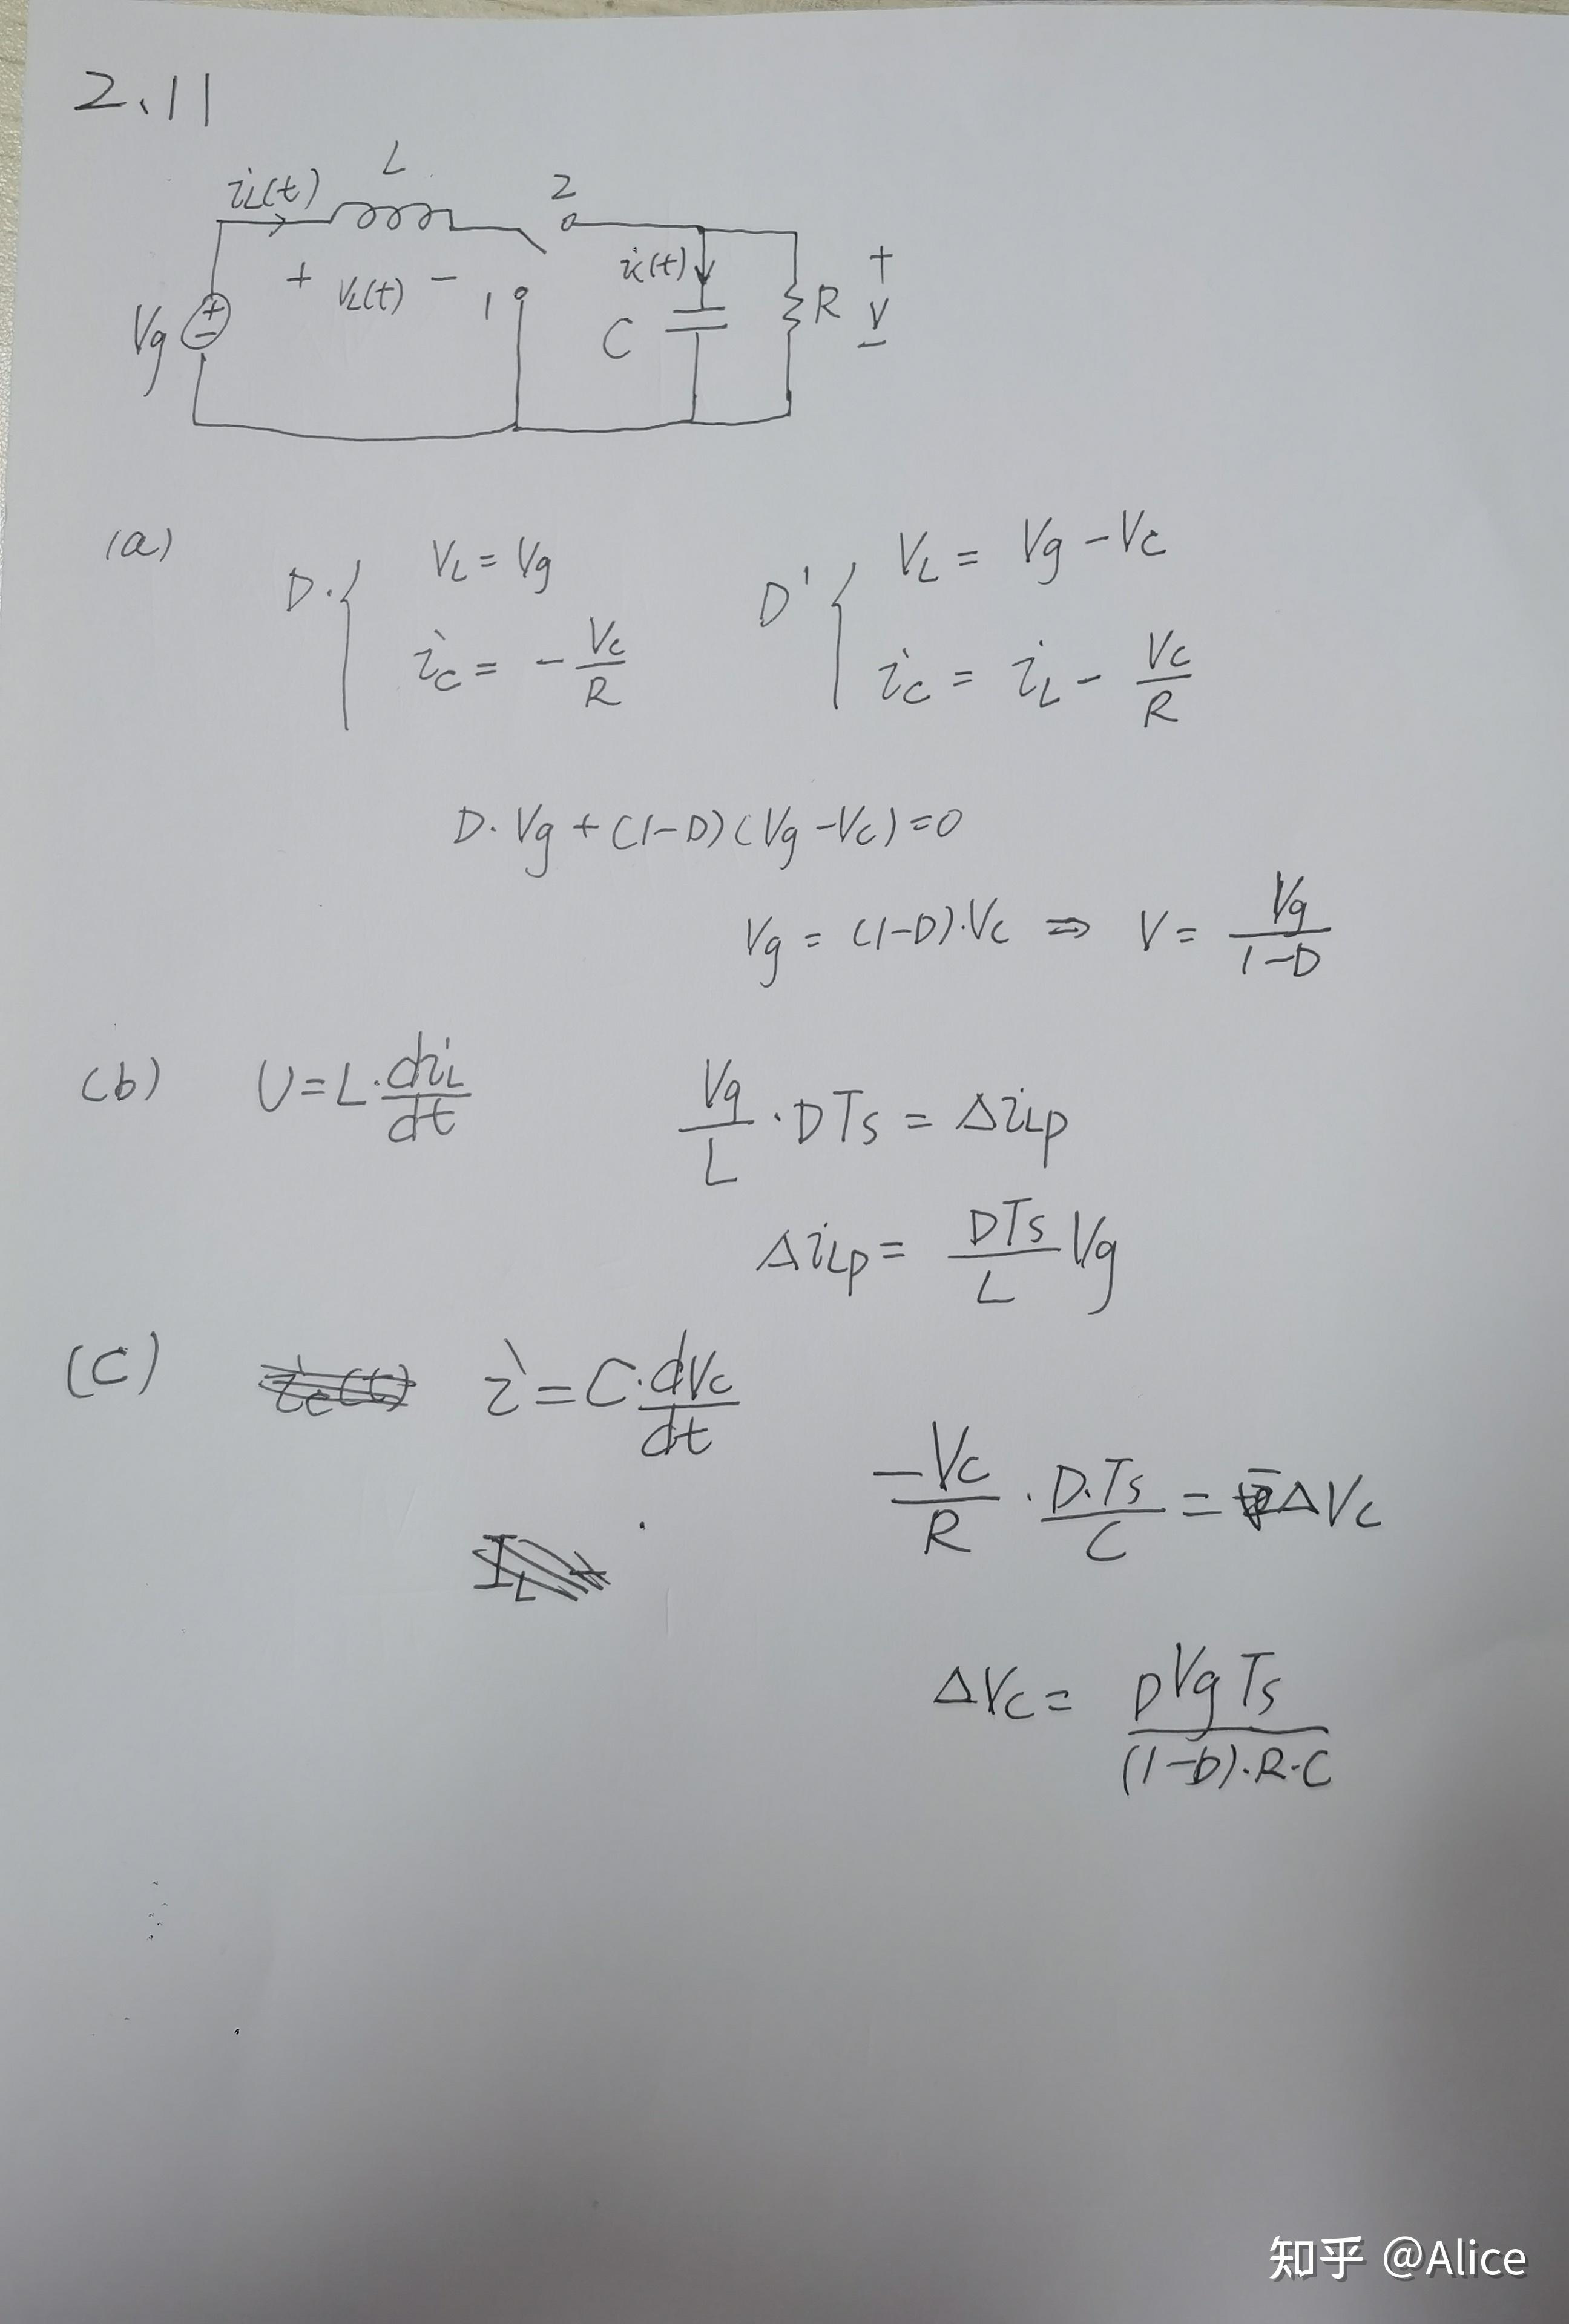 2.11
L
iL(t)
2
+ VL(t) -
1
ic(t)
+
Vg
+
-
C
R
V
-
(a)
D · { VL = Vg
iC = - VC/R
D' { VL = Vg - VC
iC = iL - VC/R
D · Vg + (1-D)(Vg - VC) = 0
Vg = (1-D) · VC ⇒ V = Vg/(1-D)
(b) U = L · diL/dt
Vg/L · DTs = ΔiLp
ΔiLp = DTs/L Vg
(C) i = C · dVC/dt
-VC/R · D·Ts/C = -ΔVC
ΔVC = DVgTs/((1-D)·R·C)
知乎 @Alice